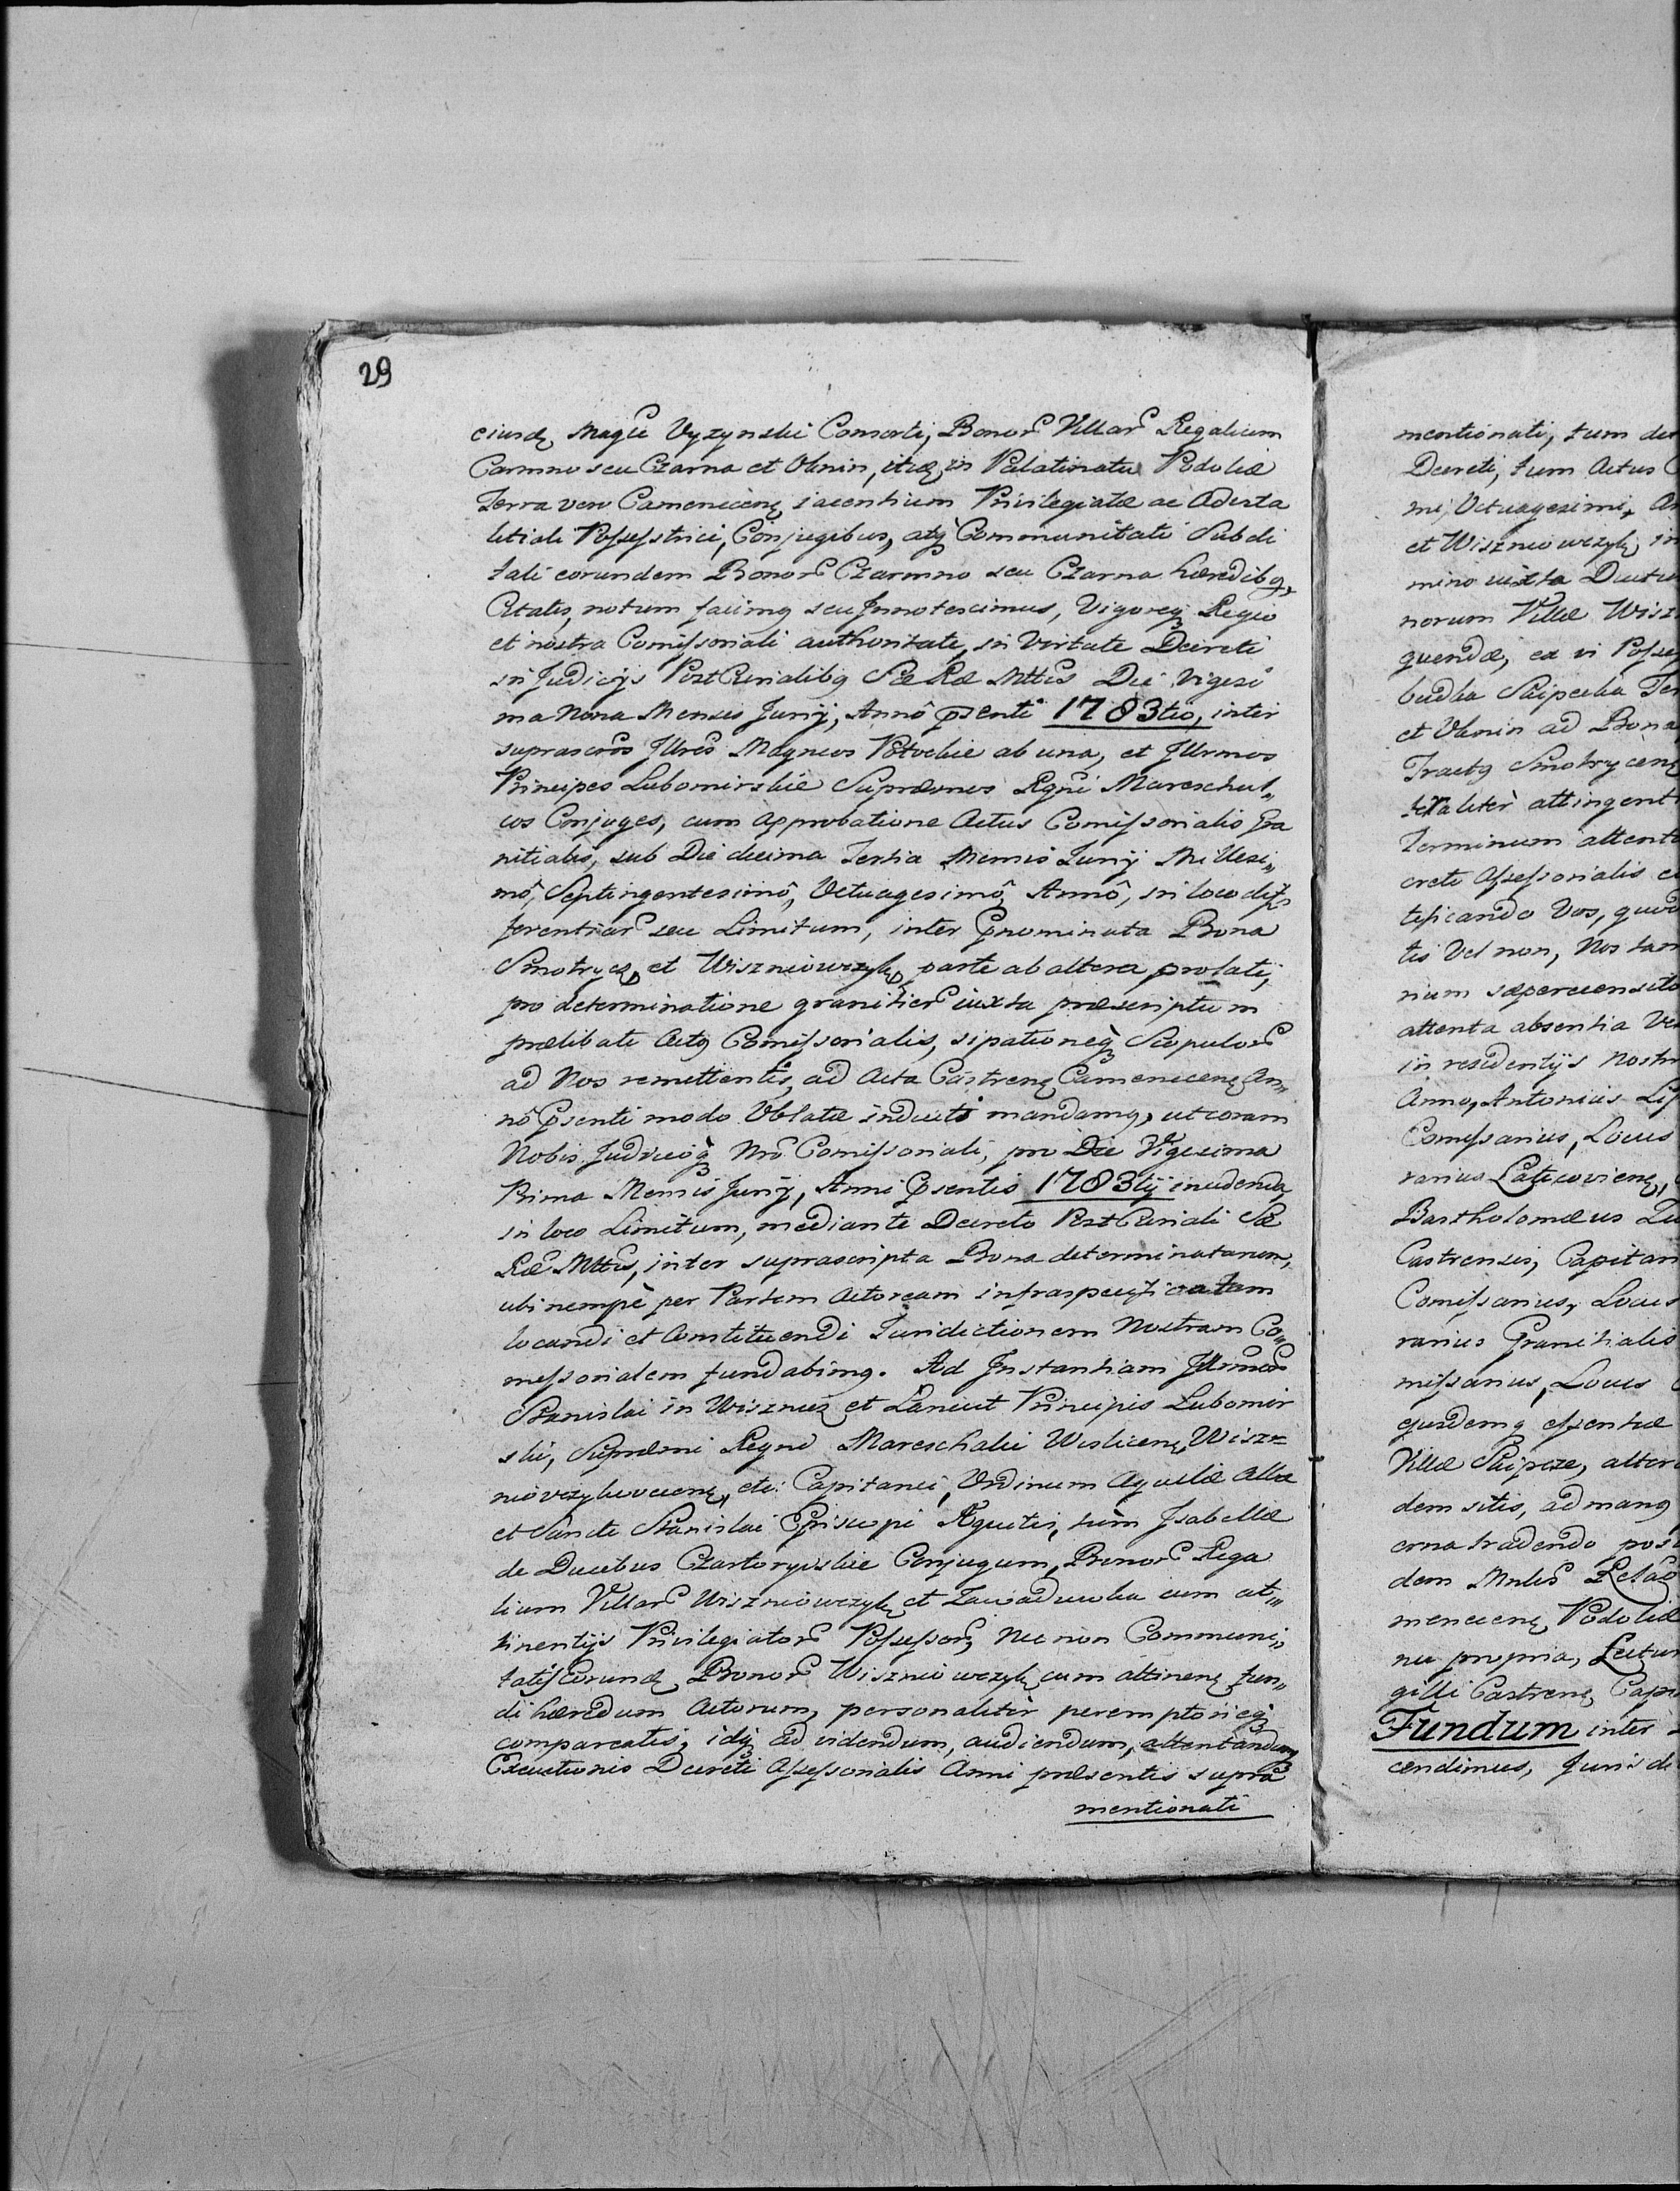 29
ciusdę Magce Vyzynski Consorti, Bonor Villar Regalium
Carmno seu Czarna et Ulnin, itid in Palatinatu Podoliæ
Terra vero Camenecenę iacentium Privilegiatæ ac Adverta
litiali Possesstrici, Conjugibus, atq Communitati Subdi
tali eorundem Bonor Czarmno seu Czarna hæredibq,
Citatis, notum facimq seu Innotescimus, Vigoreq Regio
et nostra Comissoriali authoritate, in Virtute Decreti
in Judicijs PostCurialibq Sæ Ræ Mttis Die Vigesi
ma Nona Mensis Junij, Annô psenti 1783tio, inter
suprascros Illres Magncos Potockie ab una, et Illrmos
Principes Lubomirskie Supræmos Regni Mareschal„
cos Conjuges, cum Approbatione Actus Comissorialis Gra
nitialis, sub Die decima Tertia Mensis Junij Millesi„
mô, Septingentesimô, Octuagesimô, Annô, in loco dif„
ferentiar seu Limitum, inter Pnominata Bona
Smotrycę, et Wiszniowczykę, parte ab altera prolati,
pro determinatione granitier iuxta præscriptum
prælibati Actq Comissorialis, sipationeq Scopulor
ad Nos remittentis, ad Acta Castrenę Camenecenę An„
nô Psenti modo Oblatæ inducti mandamq, ut coram
Nobis Judicioq Nrô Comissoriali, pro Die Vigesima
Prima Mensis Junij, Anni Psentis 1783tij incidenda
in loco Limitum, mediante Decreto PostCuriali Sæ
Ræ Mttis, inter suprascripta Bona determinatarum,
ubi nempè per Partem Actoream infraspecificatam
locandi et Constituendi Jurisdictionem Nostram Co„
missorialem fundabimq. Ad Instantiam Illrmor
Stanislai in Wisznicz et Lancut Principis Lubomir
skii, Supræmi Regni Mareschalci Wislicenę, Wisz=
niowczykoviens, etc: Capitanei, Ordinum Aquilæ Albæ
et Sancti Stanislai Episcopi Aquitis, tùm Isabellæ
de Ducibus Czartoryiskie Conjugum, Bonor Rega
lium Villar Wiszniowczykę et Zawadowka cum at„
tinentijs Privilegiator Possessor, Nec non Communi„
tatis Eorundę Bonor Wiszniowczykę cum attinenę fun„
di hæredum Actorum, personalitèr peremptorieq
compareatis, idq ad videndum, audiendum, attentandumq
Executionis Decreti Assessorialis Anni præsentis supra
mentionati
mentionati, tum
Decreti, tum Actus
mi, Octuagesimi, An
et Wiszniowczykę in
mino iuxta Ductu
norum Villæ Wisz
quendæ, ex vi Posse
budka Skipecka Ter
et Ulnin ad Bona
Tractq Smotrycenę
Terminum attent
creti Assessorialis
tificando Vos, quod
tis Vel non, Nos tam
attenta absentia Ve
in residentijs Nostr
Anno, Antonius Lip
Comissarius, Locus
rarius Laticoviens,
Bartholomæus
Castrensis, Capitan
Comissarius, Locus
rarius Granitialis
missarius, Locus
ejusdemq essentiæ
Villæ Skipcze, alter
dem sitis, ad manq
orna tradendo posi
dem
menecenę Podoliæ
nu propria, Lectu
gilli Castrenę Cap
Fundum inter
cendimus, Juris di